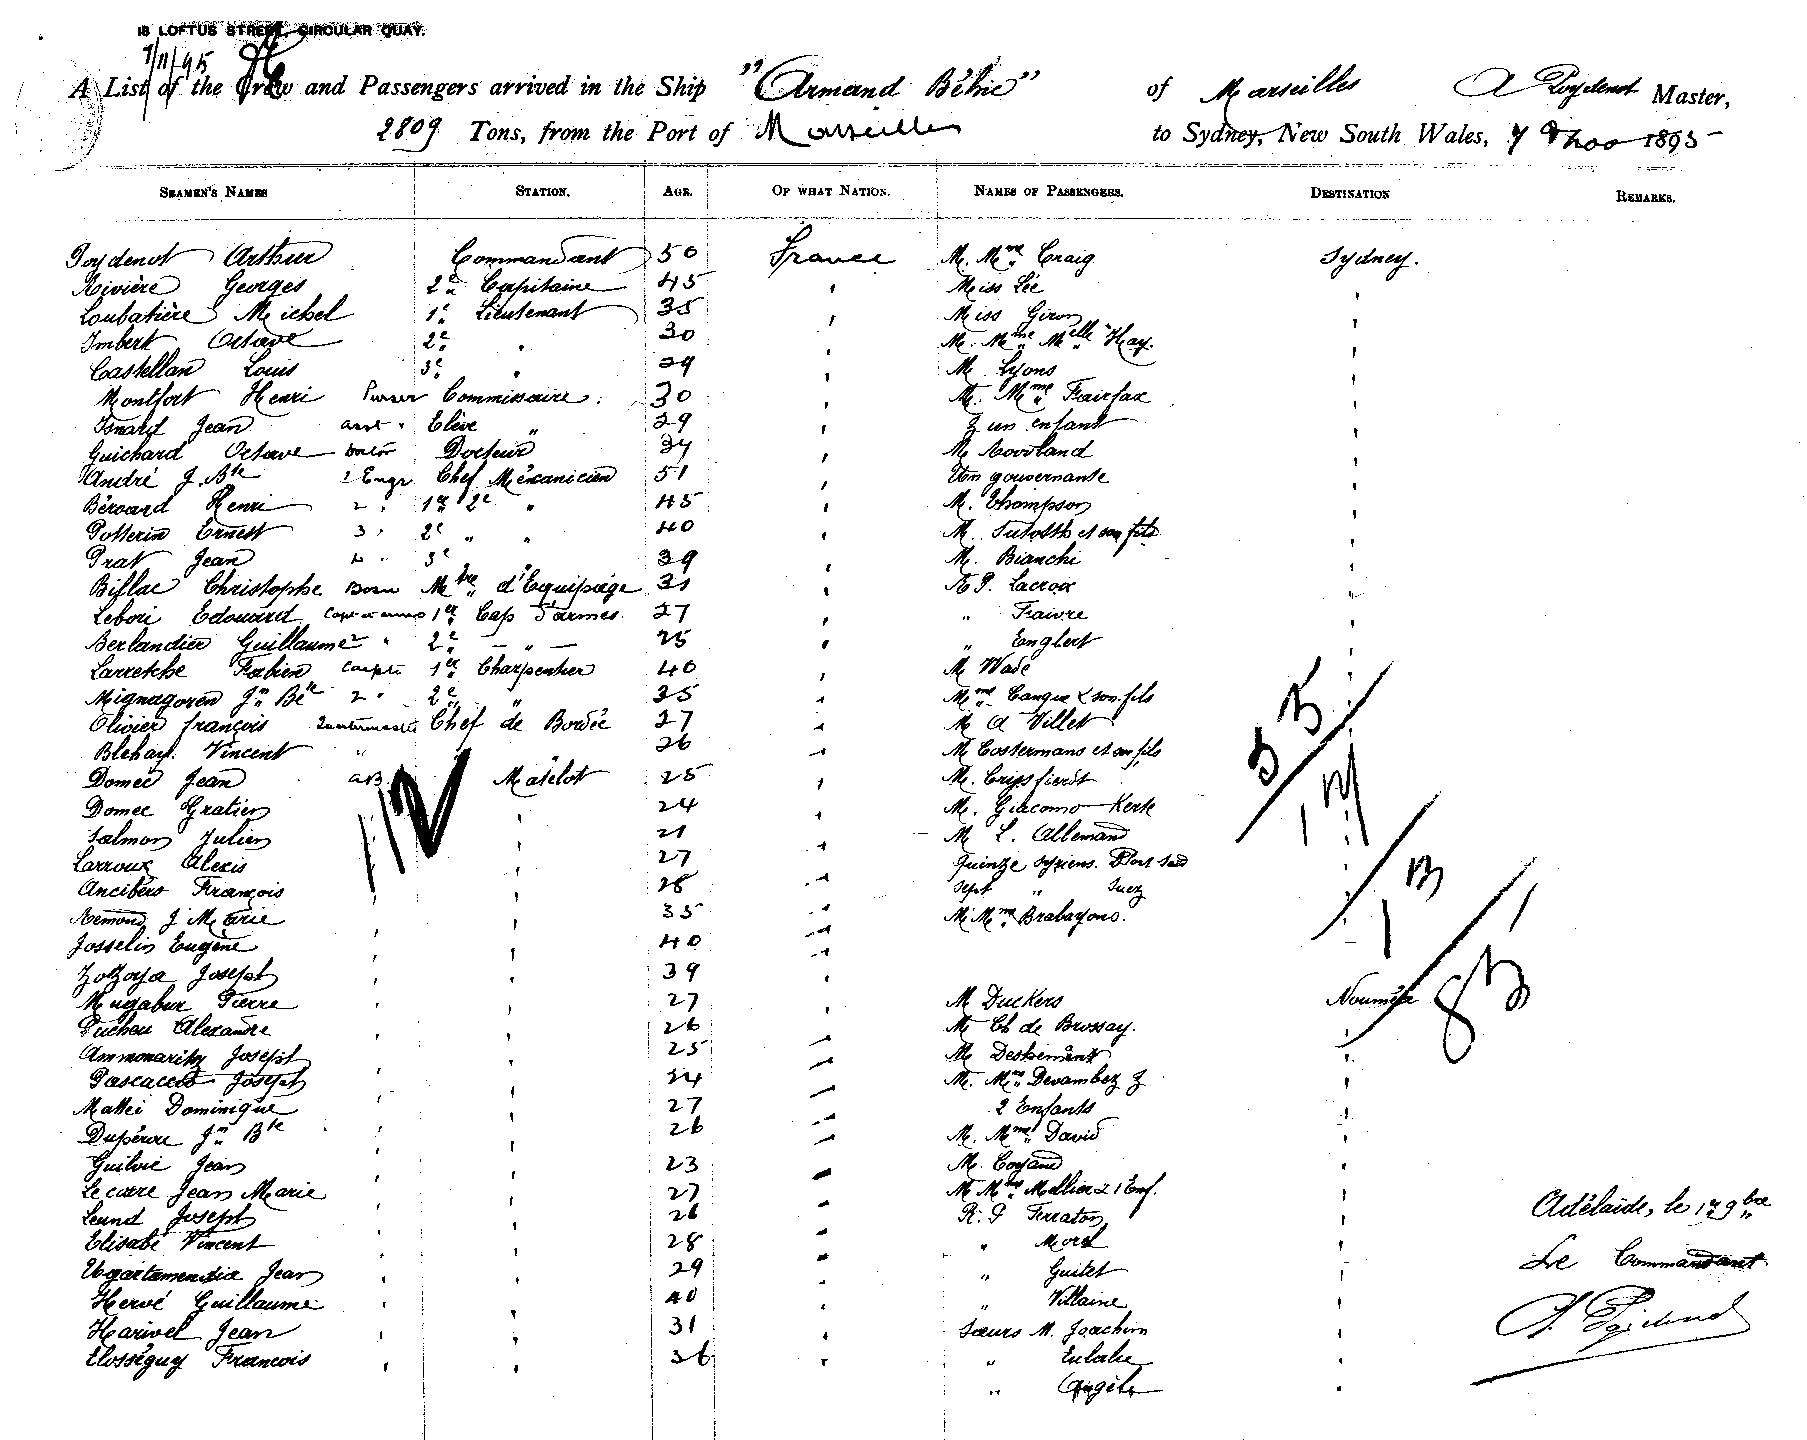 18 LOFTUS STREET, CIRCULAR QUAY.
7/11/95
A List of the Crew and Passengers arrived in the Ship "Armand Béhic" of Marseilles A Poydenot Master,
2809 Tons, from the Port of Marseilles to Sydney, New South Wales, 7 1895
SEAMEN'S NAMES STATION. AGE. OF WHAT NATION. NAMES OF PASSENGERS. DESTINATION REMARKS.
Poydenot Arthur Commandant 50 France M. Mme Craig Sydney.
Rivière Georges 2e Capitaine 45 " Miss Lée "
Loubatière Michel 1e Lieutenant 35 " Miss Giron "
Imbert Octave 2e " 30 " M. Mme Melle Hay. "
Castellan Louis 3e " 29 " M. Lyons "
Montfort Henri Purser Commissaire. 30 " M. Mme Fairfax "
Isnard Jean asst " Elève " 29 " & un enfant "
Guichard Octave Doctor Docteur 34 " M. "
André J. Bte 1 Engr Chef Mécanicien 51 " gouvernante "
Béroard Henri 2 " 1er 2e " 45 " M. Thompson "
Potterin Ernest 3 " 2e " " 40 " M. et son fils "
Prat Jean 4 " 3e 39 " M. Bianchi "
Billac Christophe Bosn Mtre d'Equipage 31 " R P. Lacroix "
Lebori Edouard Capt d'armes 1er Cap d'armes. 27 " " Faivre "
Berlandier Guillaume 2 " 2e — " — 25 " " Englert "
Larretche Fabien Carptr 1er Charpentier 40 " M Wade "
Mignagoren Jn Bte 2 " 2e " 35 " Mme Cangue & son fils "
Olivier françois Quartermaster Chef de Bordée 27 " M A Villet "
Blehay. Vincent " 26 " M Costermans et son fils
Domec Jean AB Matelot 25 " M. 33
Domec Gratien 112 " 24 " M. Giacomo Kerk 17
Salmon Julien " 21 " M L. Allemand "
Larroux Alexis " 27 " Quinze Syriens. Port Said
Ancibero François " 28 " Sept " Suez 13
Remond J Marie " " 35 " M. Mme Brabazons. 1
Josselin Eugène " " 40 "
Zozoya Joseph " " 39 " 83
Mugabur Pierre " " 27 " M Duckers Nouméa
Duchou Alexandre " " 26 " M Ch de Brossay. "
Ammonaritz Joseph " " 25 " M "
Pascaccio Joseph " " 24 " M. Mme Devambez & "
Mattei Dominique " " 27 " 2 Enfants "
Dupérou Jn Bte " " 26 " M. Mme David "
Guilvic Jean " " 23 " M. Coyand "
Lecorre Jean Marie " " 27 " M Mme Mellier & 1 Enf. "
Leund Joseph " " 26 " R. P Ferraton "
Elisabé Vincent " " 28 " " Morel "
Ugartamendia Jean " " 29 " " Guitet "
Hervé Guillaume " " 40 " " Villaine "
Harivel Jean " " 31 " Sœurs M. Joachim "
Elosséguy François " " 36 " " Eulalie "
" Angèle "
Adélaïde, le 1er 9bre
Le Commandant
A. Poydenot